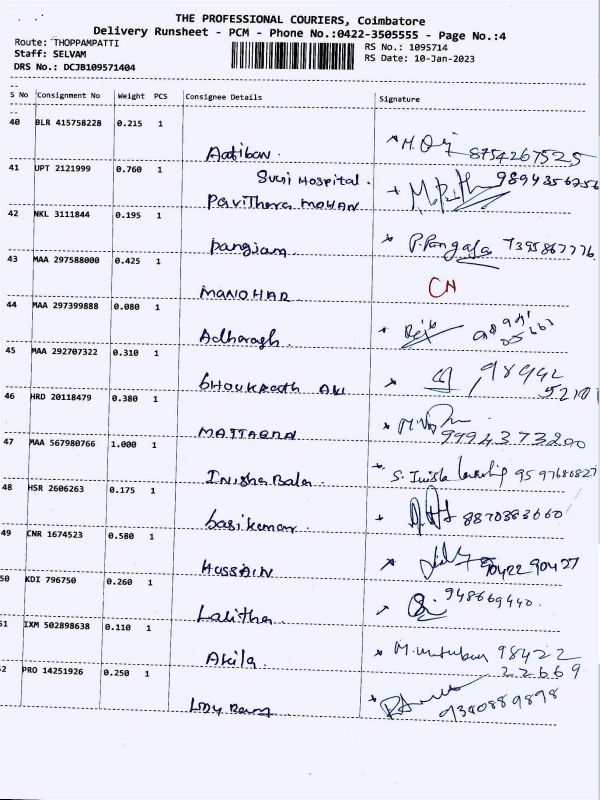 THE PROFESSIONAL COURIERS, Coimbatore
Delivery Runsheet - PCM - Phone No.:0422-3505555 - Page No.:4
Route: THOPPAMPATTI
RS No.: 1095714
Staff: SELVAM
RS Date: 10-Jan-2023
DRS No.: DCJB109571404
S No Consignment No Weight PCS Consignee Details Signature
40 BLR 415758228 0.215 1
Aatiban. M. 8754267525
41 UPT 2121999 0.760 1
Suri Hospital. 9894356256
Pavithera MOHAN
42 NKL 3111844 0.195 1
pangiam P.Pangaja 7395867776
43 MAA 297588000 0.425 1
MANOHAR CN
44 MAA 297399888 0.080 1
Adharagh. 98941 05663
45 MAA 292707322 0.310 1
98942 52101
46 HRD 20118479 0.380 1
9994373200
47 MAA 567980766 1.000 1
Inisha Bala. S. 9597680827
48 HSR 2606263 0.175 1
basikumar. 8870383660
49 CNR 1674523 0.580 1
HUSSAIN 90422 90427
50 KDI 796750 0.260 1
Lalitha. 948669440.
51 IXM 502898638 0.110 1
Akila. M. 98422 22669
52 PRO 14251926 0.250 1
9340889898